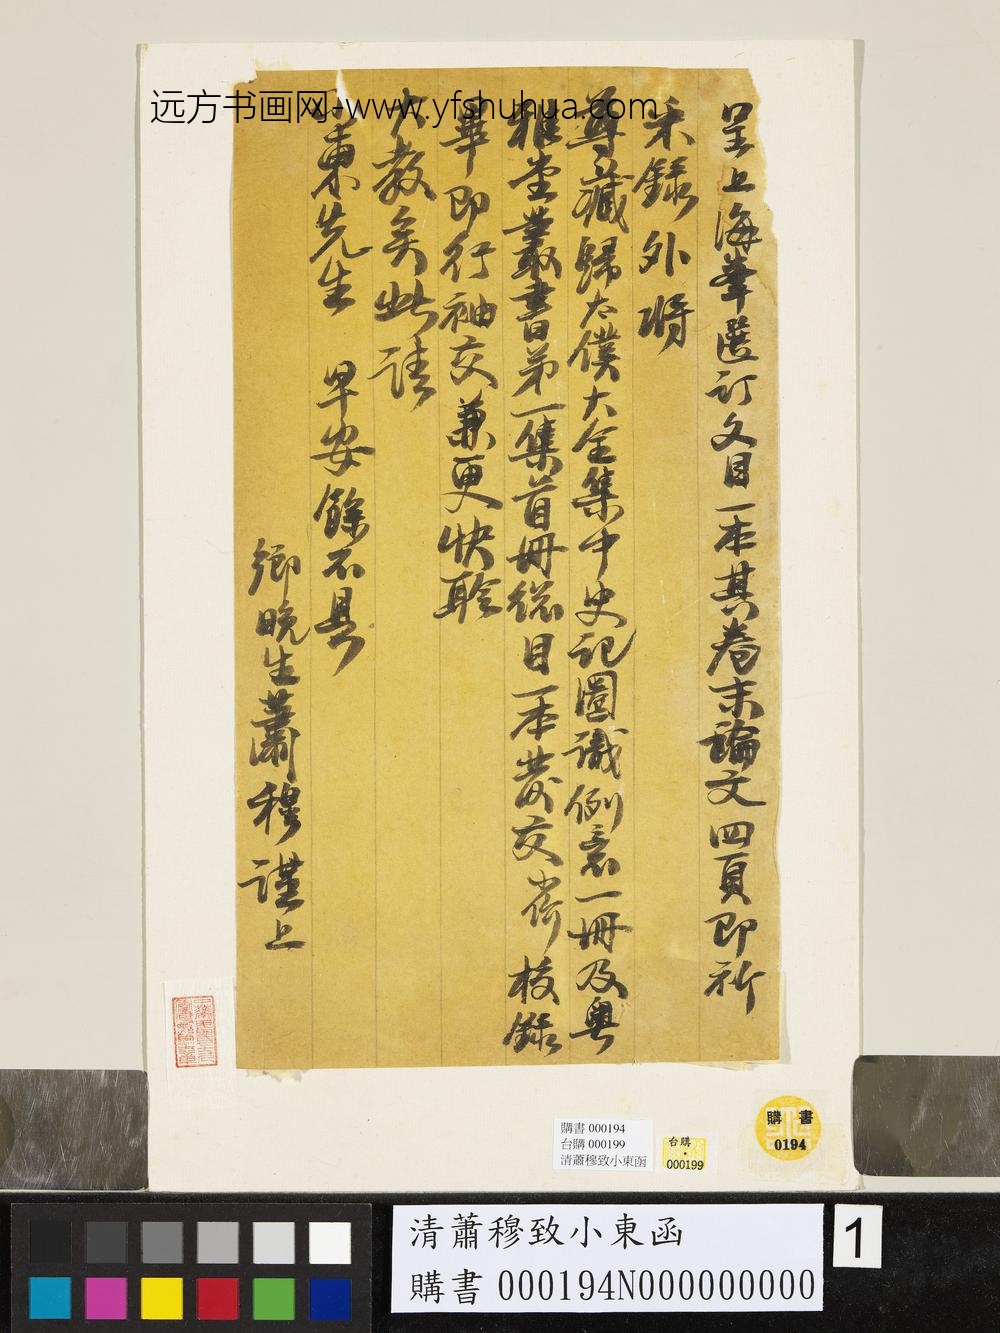 远方书画网-www.yfshuhua.com
呈上海峯選訂文目一本其卷末論文四頁即祈
采錄外將
尊藏歸太僕大全集中史記圈識例意一冊及粵
雅堂叢書第一集首冊總目一本發交荷校錄
畢即行袖交兼更快聆
大教矣此請
小東先生 早安餘不具
鄉晚生蕭穆謹上
購書 000194
台購 000199
清蕭穆致小東函
台購
000199
購 書
0194
清蕭穆致小東函
購書 000194N000000000
1